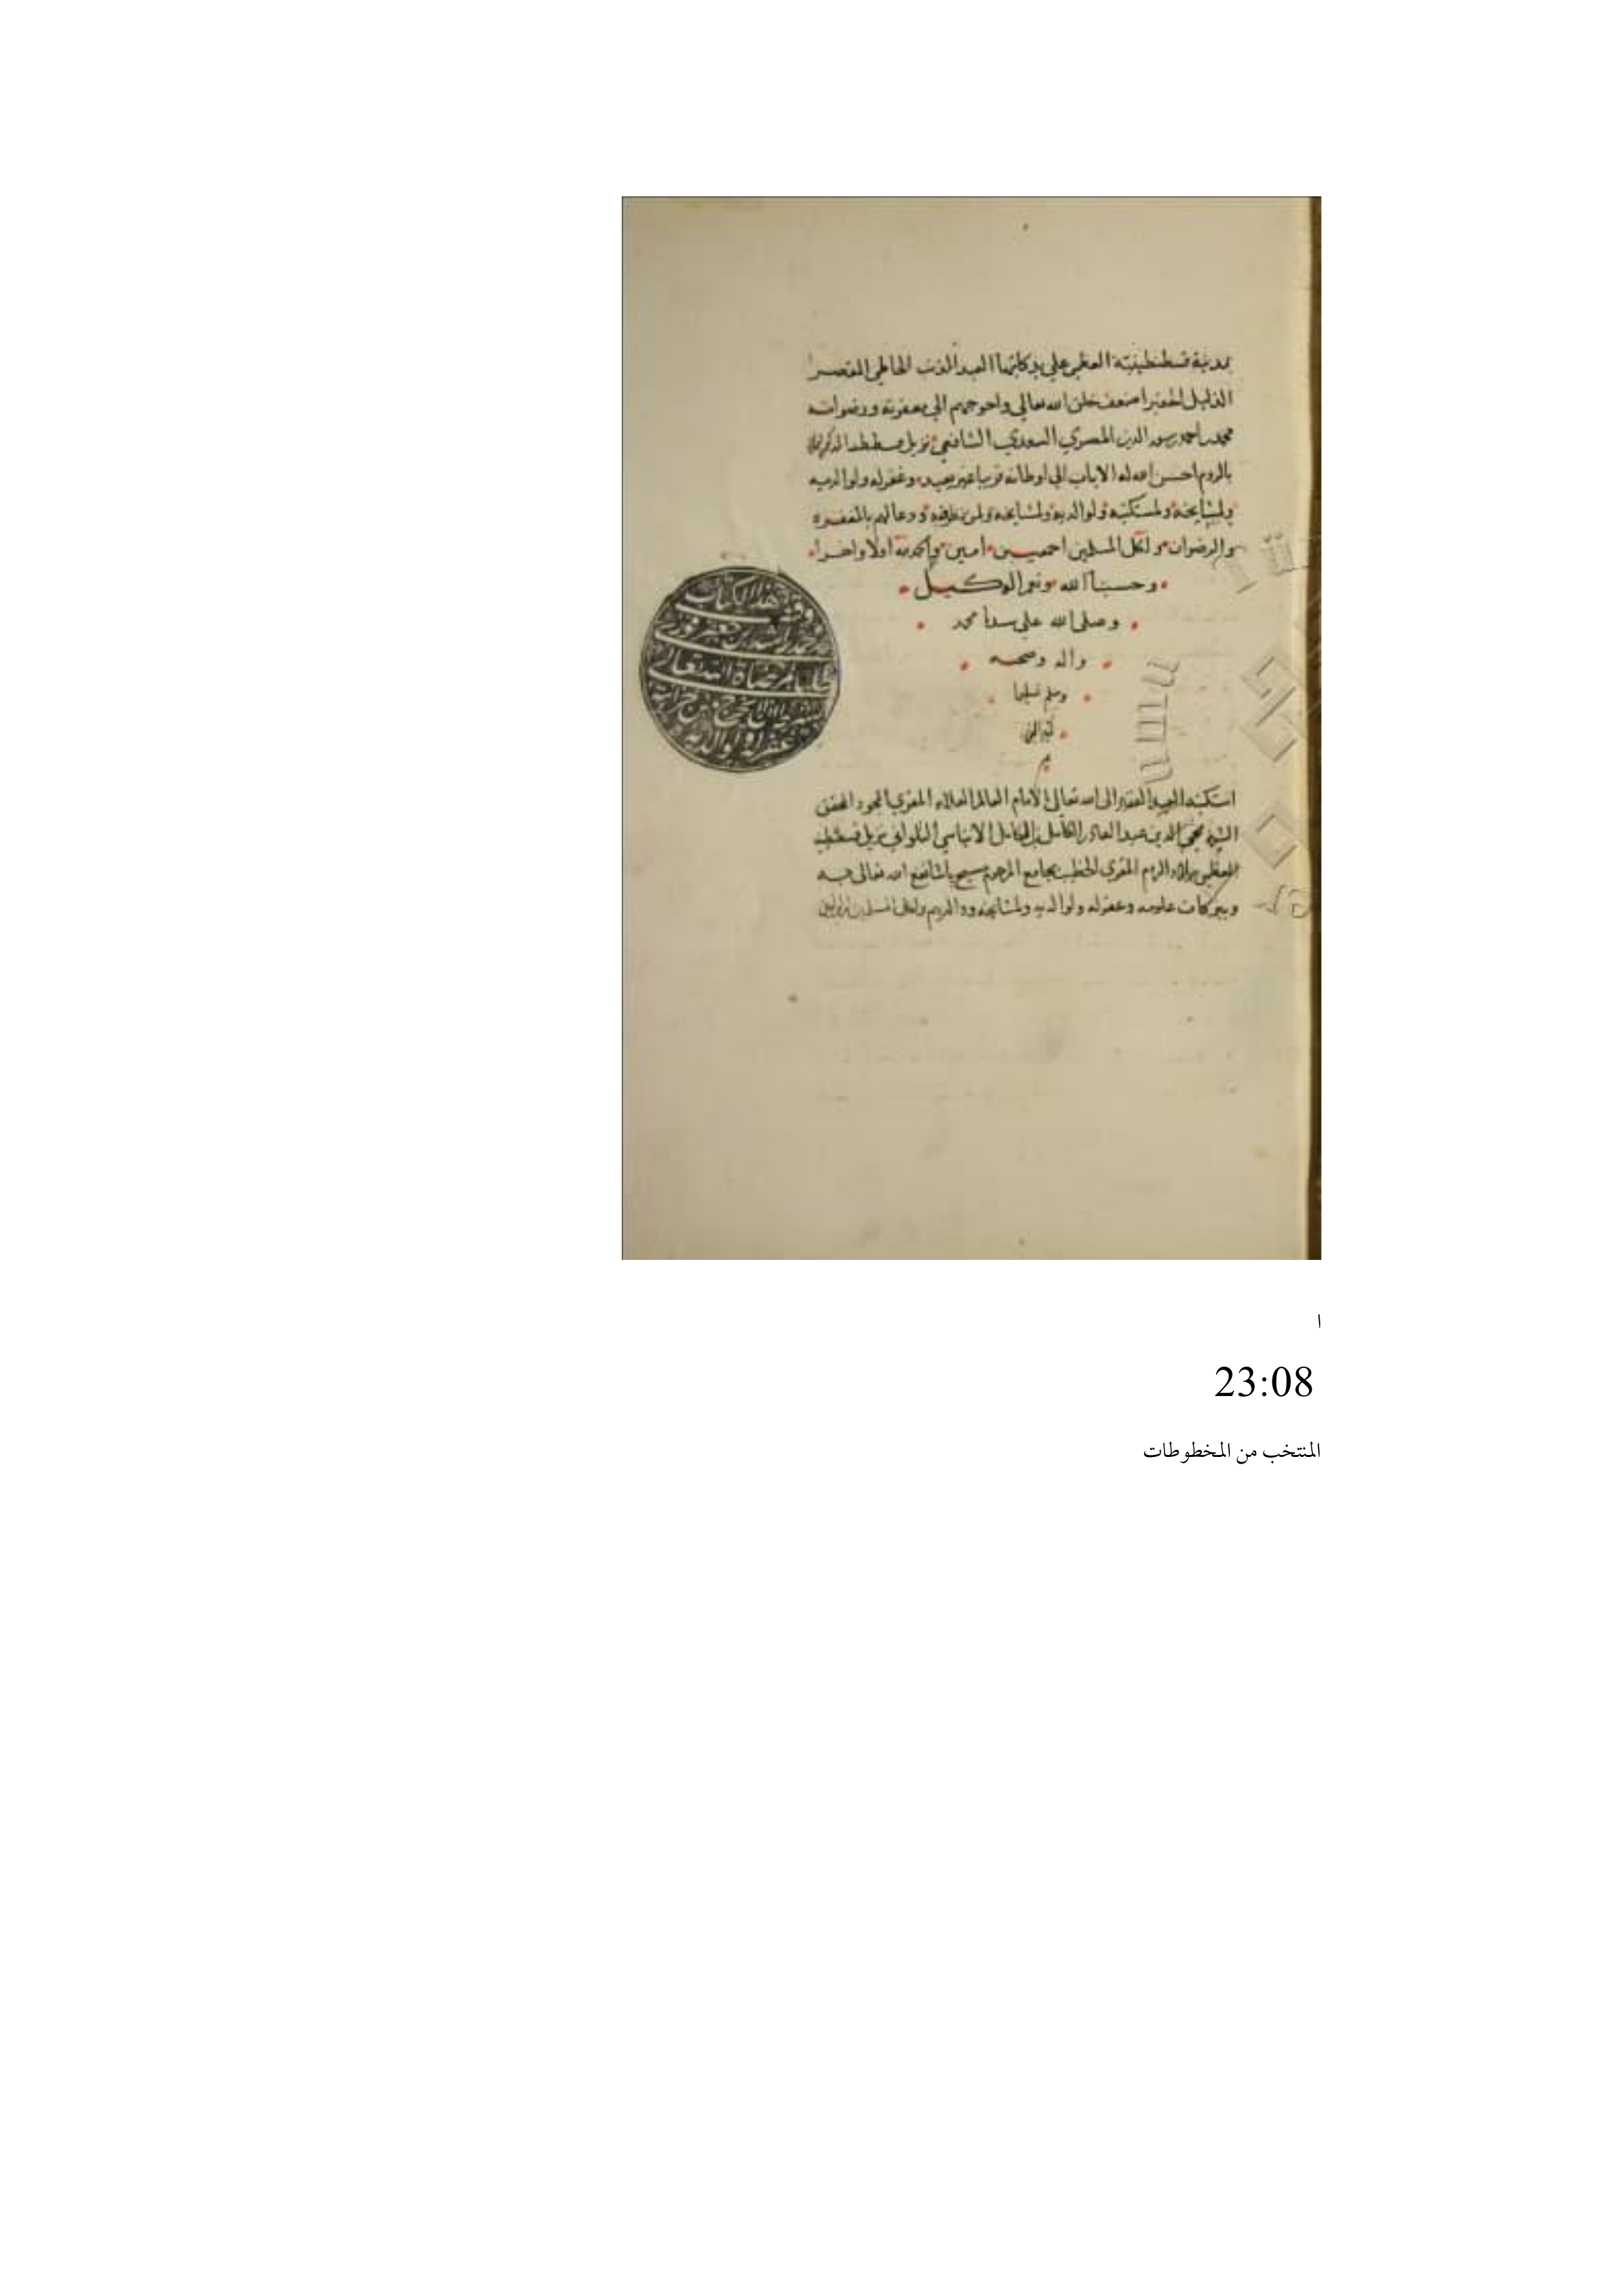 بمدينة قسطنطينية العظمى على يد كاتبها العبد المذنب الخاطي المقصر
الذليل الحقير اضعف خلق الله تعالى واحوجهم الى مغفرته ورضوانه
المصري السعودي الشافعي نزيل
بالروم احسن الله له الاياب الى اوطانه قريبا غير بعيد وغفر له ولوالديه
ولمشايخه ولمستكتبه ولوالديه ولمشايخه ولمن نظر فيه ودعا لهم بالمغفرة
والرضوان ولكل المسلمين اجمعين امين والحمد لله اولا واخرا
وحسبنا الله ونعم الوكيل
وصلى الله على سيدنا محمد
واله وصحبه
وسلم تسليما
استكتبه العبد الفقير الى الله تعالى الامام العالم العلامه المقري المجود المحقق
الشيخ محيي الدين عبد القادر نزيل قسطنطينية
العظمى المقري الخطيب بجامع المرحوم مسيح باشا نفع الله تعالى به
وببركات علومه وغفر له ولوالديه ولمشايخه
وقف هذا الكتاب
طلبا لمرضاة الله تعالى
غفر له ولوالديه
ا
23:08
المنتخب من المخطوطات